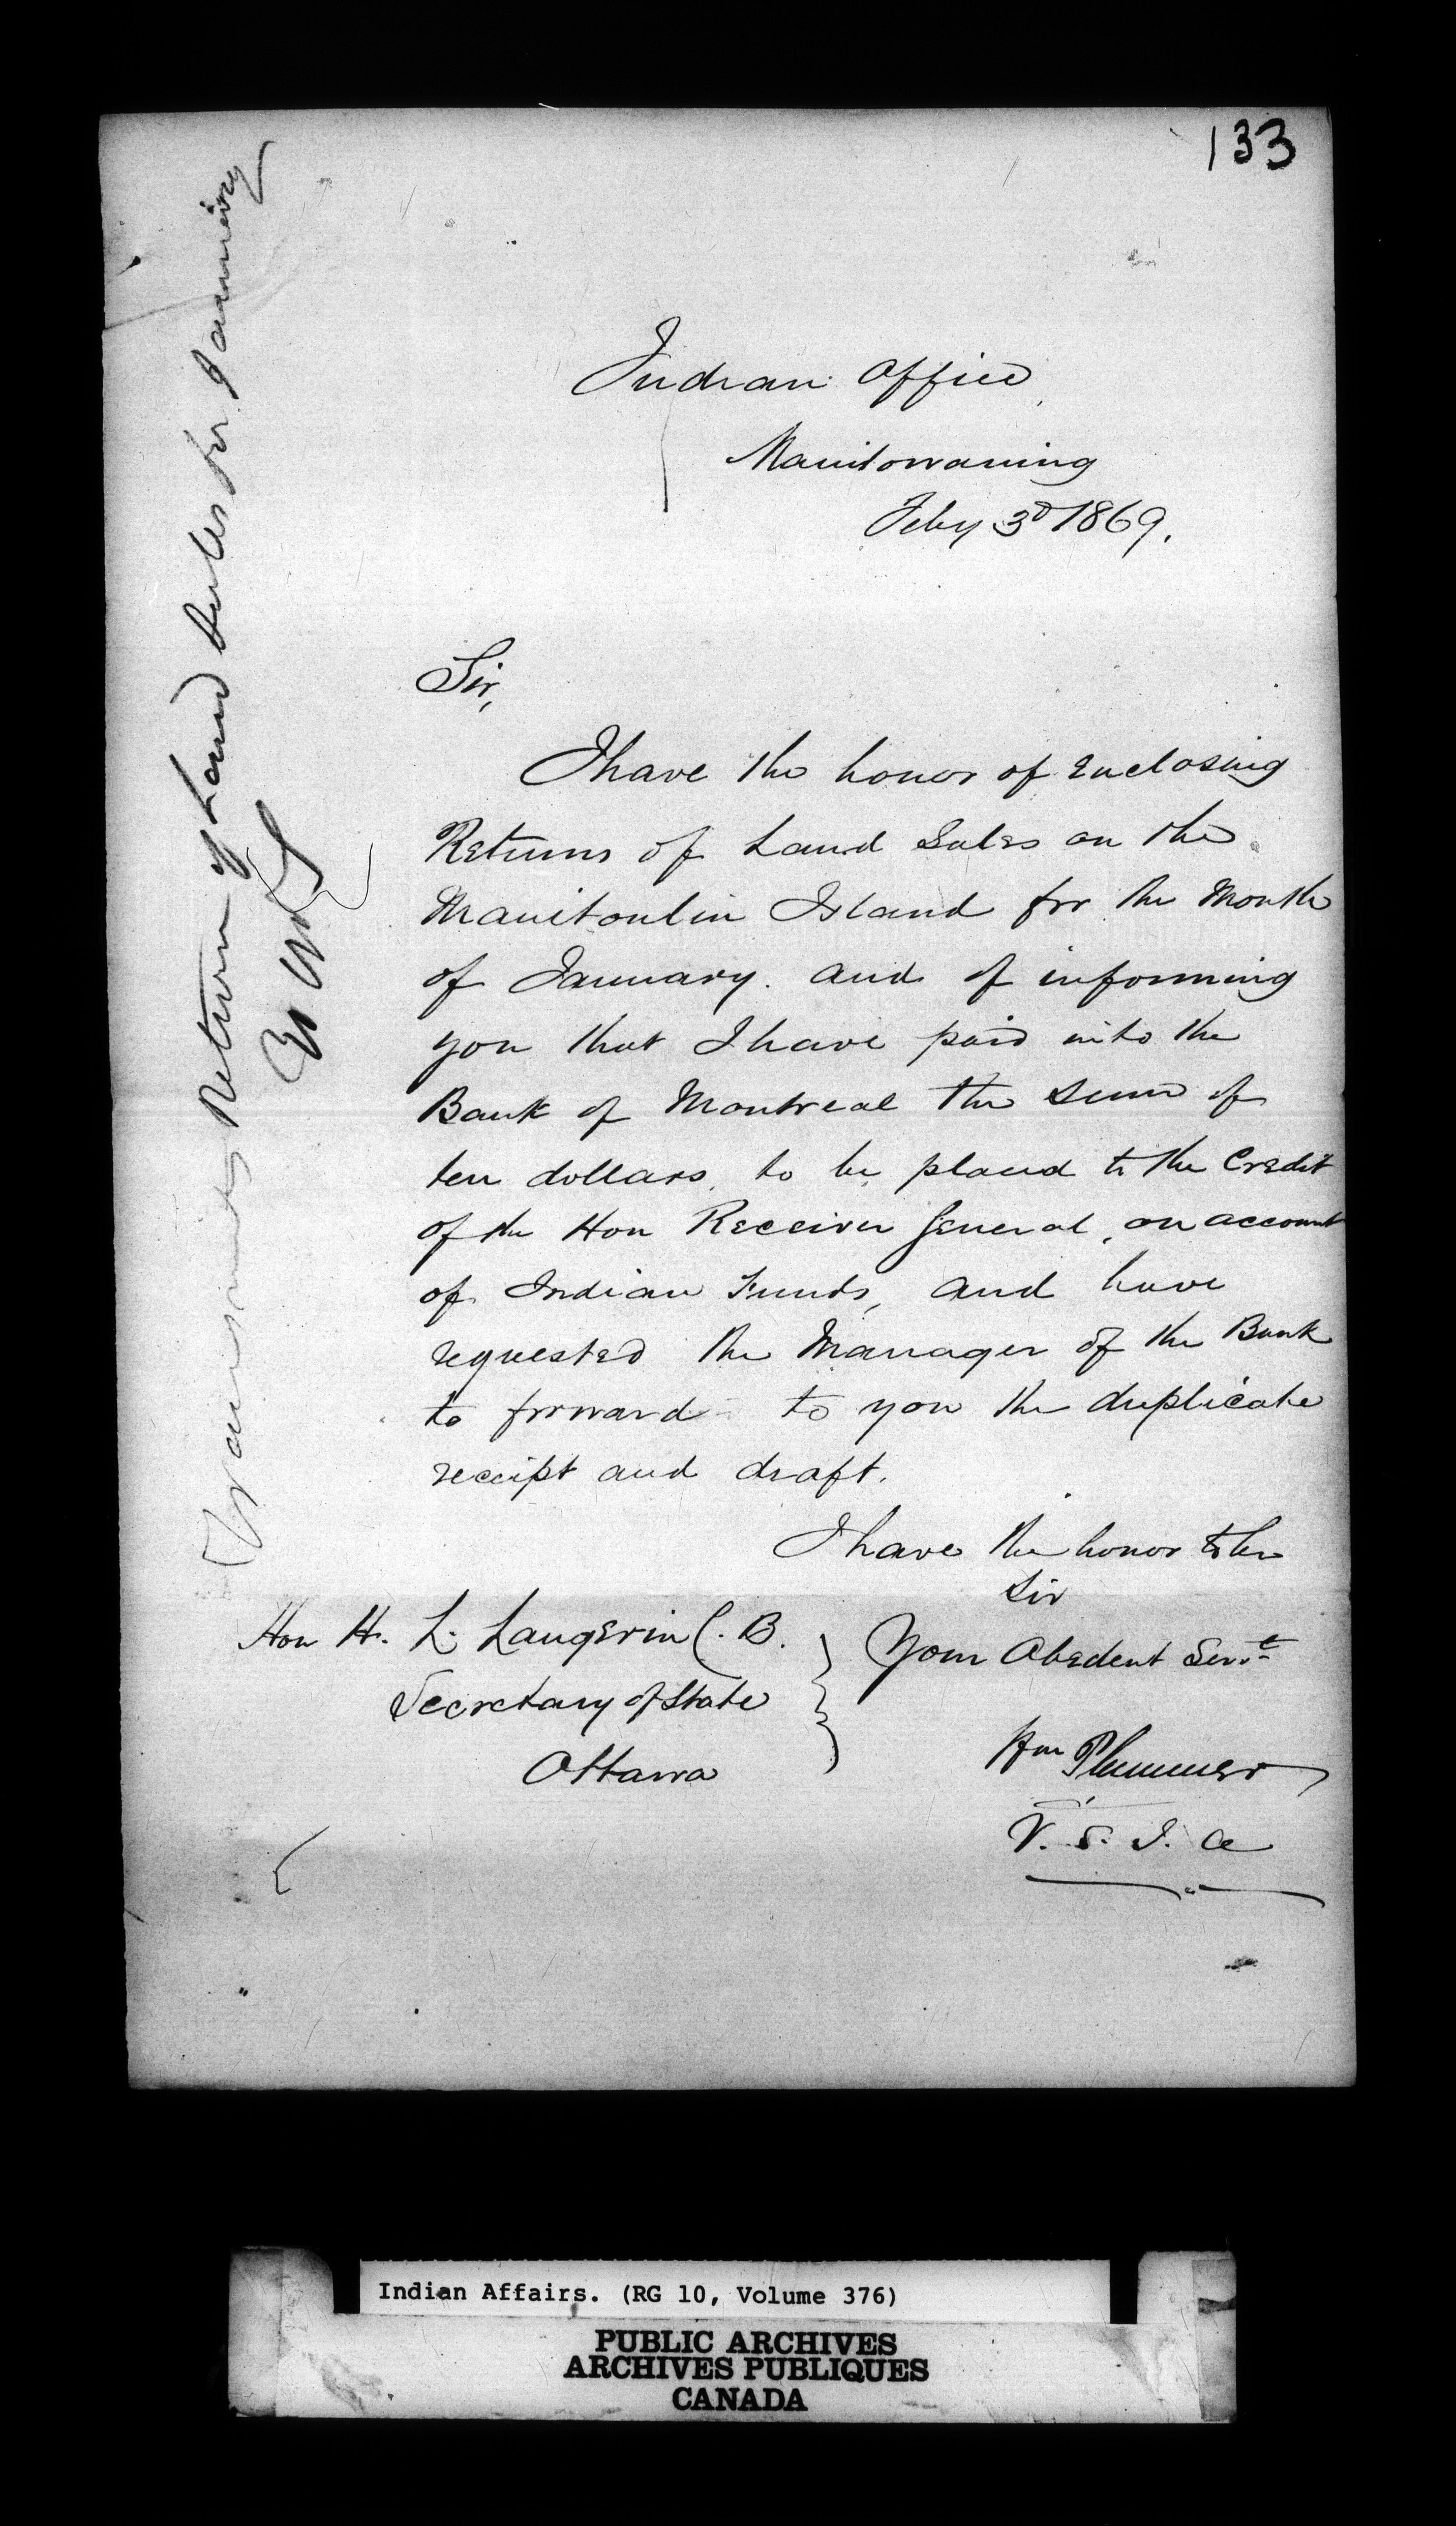 133
Indian Office
Manitowaning
Feby 3d 1869.
Sir,
I have the honor of Enclosing
Returns of Land Sales on the
Manitoulin Island for the Month
of January. and of informing
you that I have paid into the
Bank of Montreal the Sum of
ten dollars, to be placed to the Credit
of the Hon Receiver General, on account
of Indian Funds, and have
requested the Manager of the Bank
to forward to you the duplicate
receipt and draft.
I have the honor to be
Sir
Your Obedent Servt
Wm Plummer
V. S. I. A
Hon H. L. Langevin C. B.
Secretary of State
Ottawa
Transmits Return of Land Sales for January
Indian Affairs. (RG 10, Volume 376)
PUBLIC ARCHIVES
ARCHIVES PUBLIQUES
CANADA